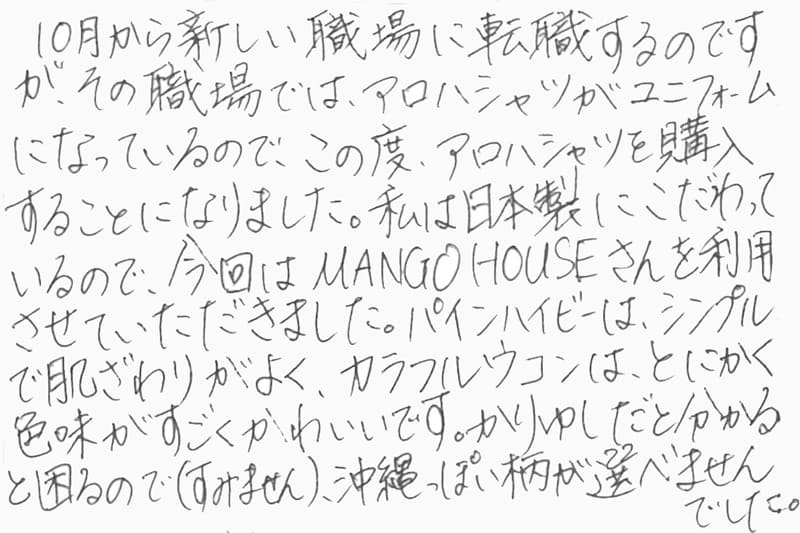 10月から新しい職場に転職するのです
が、その職場では、アロハシャツがユニフォーム
になっているので、この度、アロハシャツを購入
することになりました。私は日本製にこだわって
いるので、今回はMANGO HOUSEさんを利用
させていただきました。パインハイビーは、シンプル
で肌ざわりがよく、カラフルウコンは、とにかく
色味がすごくかわいいです。かりゆしだと分かる
と困るので(すみません)、沖縄っぽい柄が選べません
でした。